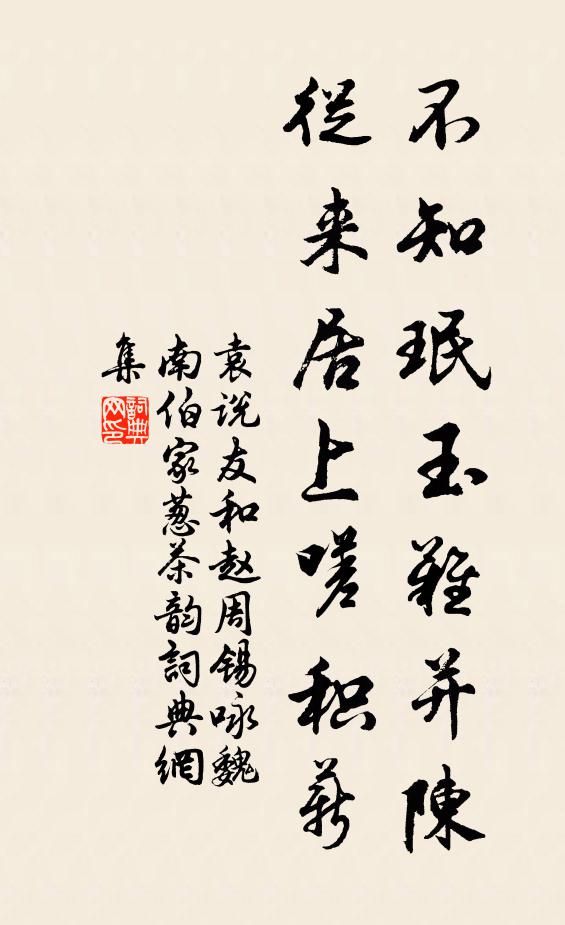 不知珉玉難并陳
從来居上嗟积薪
袁説友和赵周锡咏魏
南伯家葱茶韵詞典網
集
詞典
网印